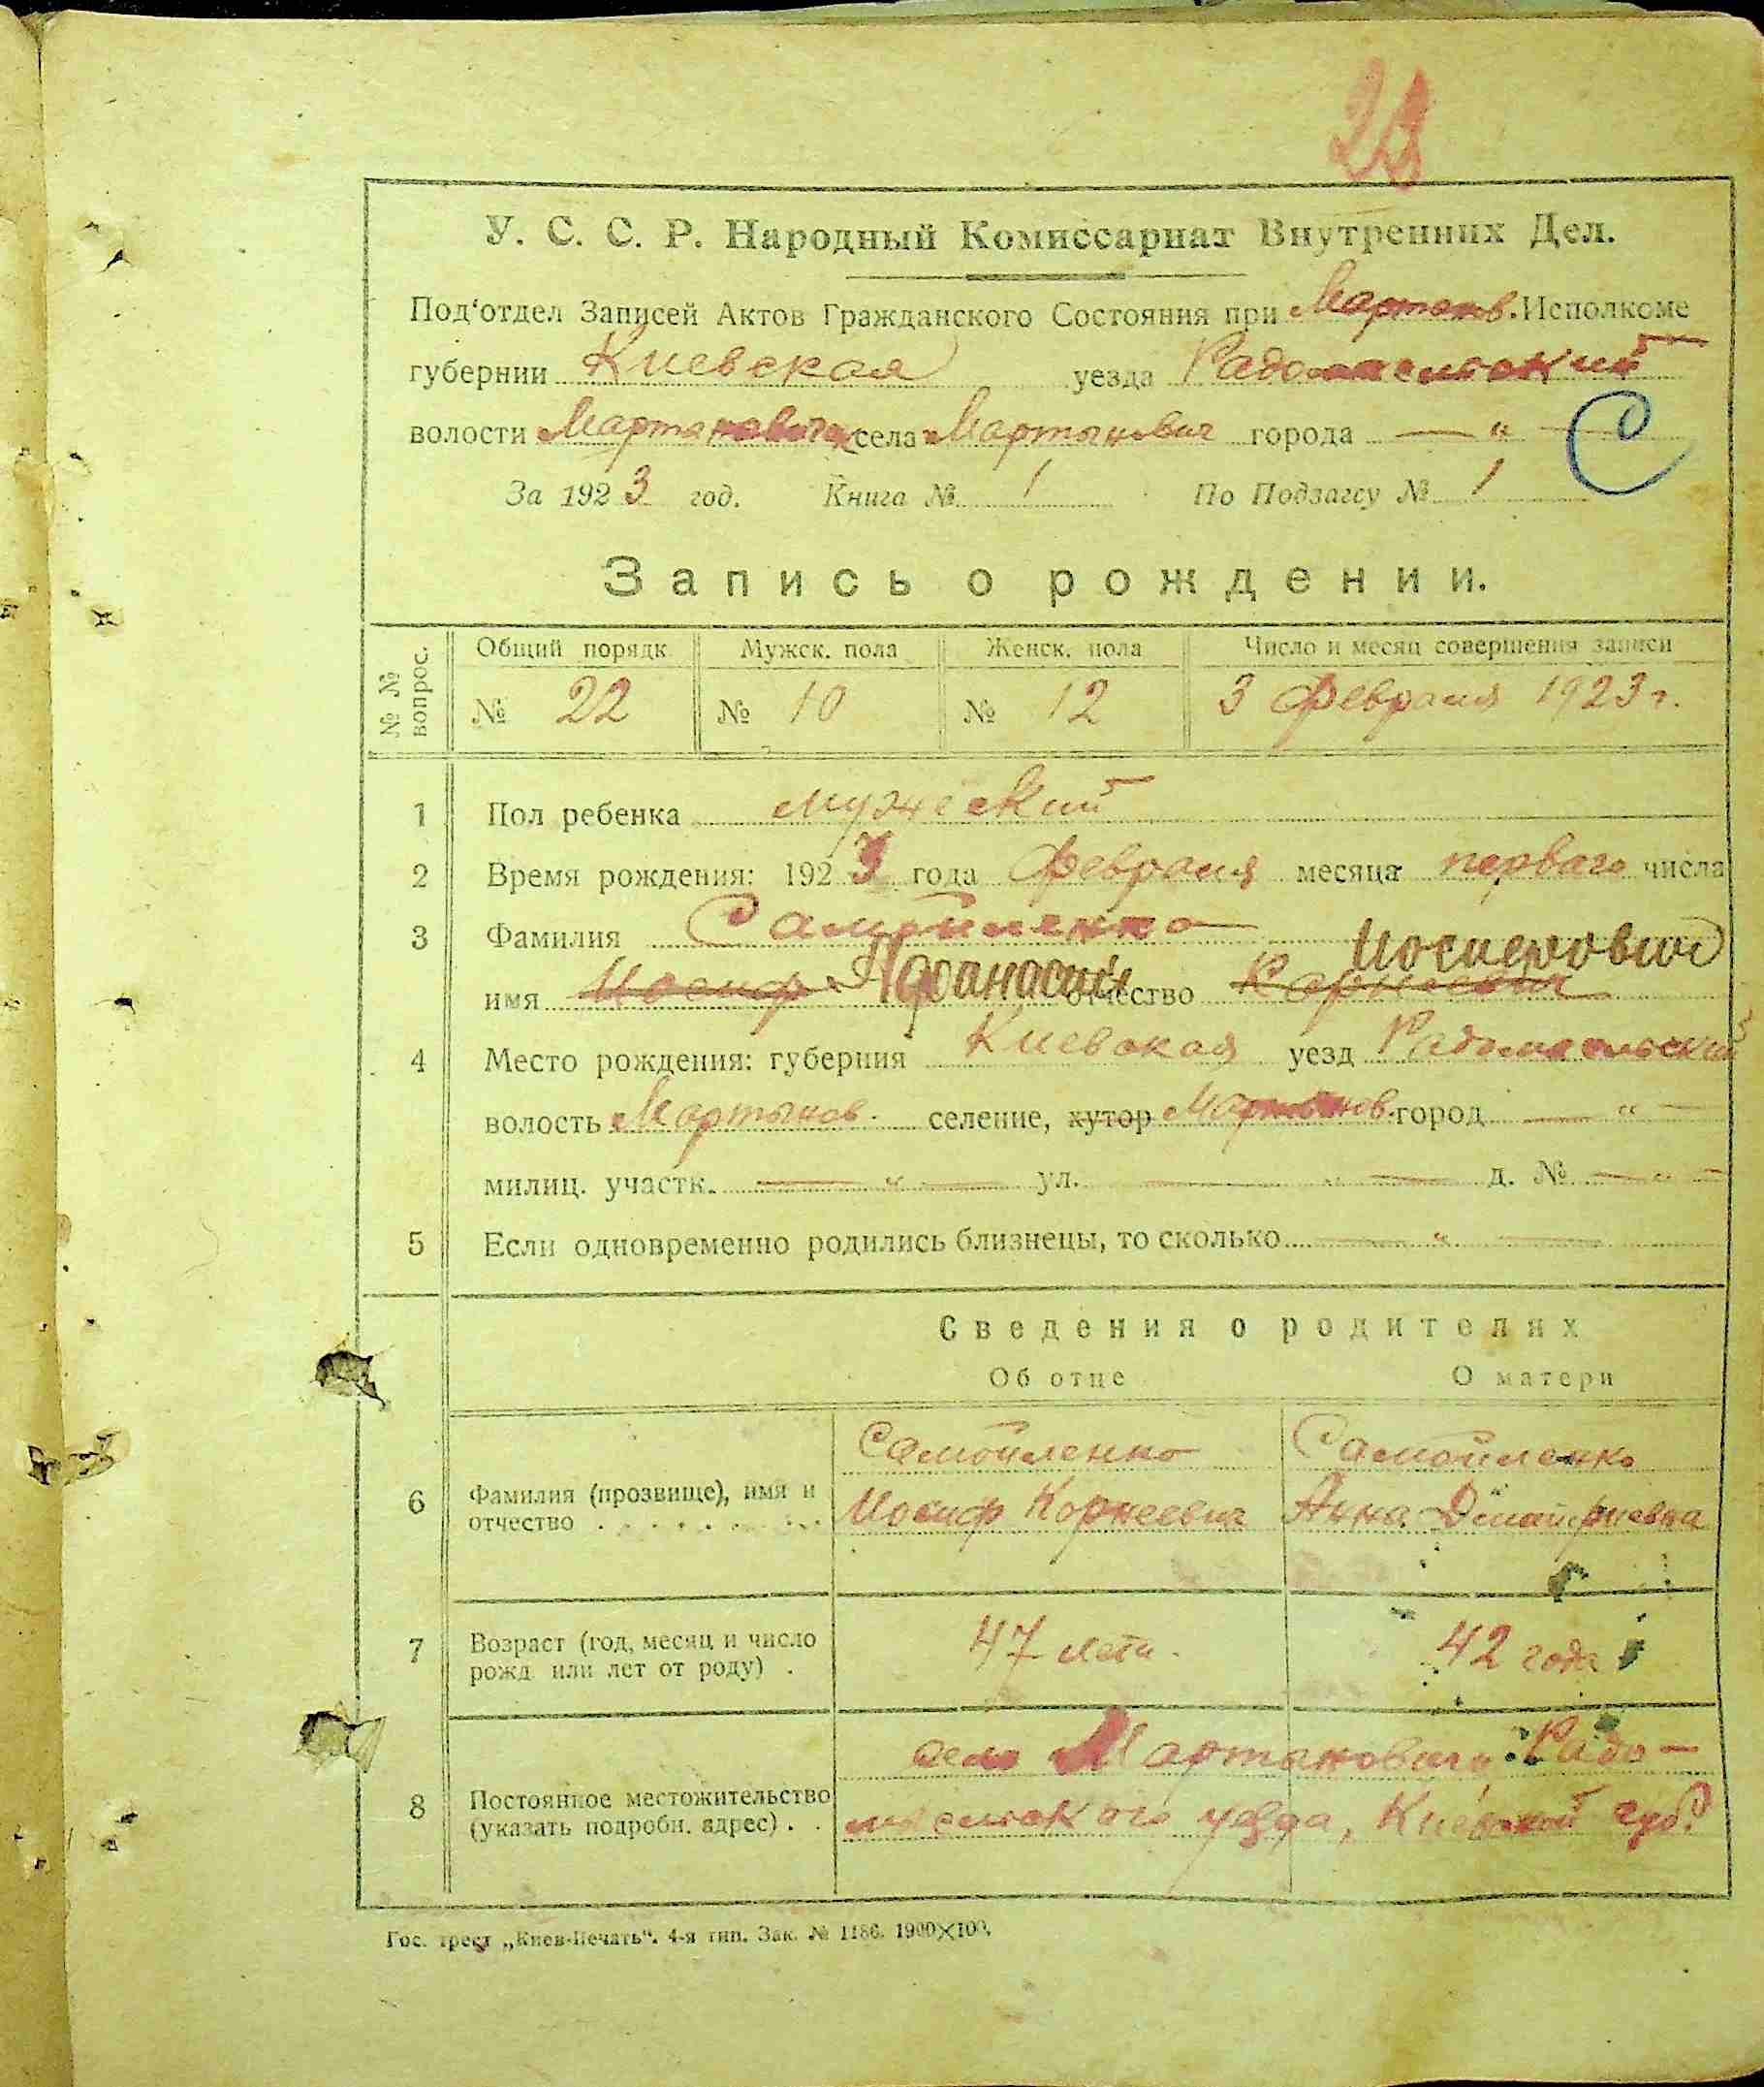 У. С. С. Р. Народный Комиссариат Внутренних Дел.
Под‘отдел Записей Актов Гражданского Состояния при Мартынов. Исполкоме
губернии Киевская уезда Радомысльский
волости Мартыновичи села Мартынович города — " —
За 1923 год. Книга № 1 По Подзагсу № 1
С
Запись о рождении.
№ № вопрос.
Общий порядк Мужск. пола Женск. пола Число и месяц совершения записи
№ 22 № 10 № 12 3 февраля 1923 г.
1 Пол ребенка мужской
2 Время рождения: 1923 года февраля месяца перваго числа
3 Фамилия Самойленко
Иосифович
имя Иосиф Афанасий отчество
4 Место рождения: губерния Киевская уезд Радомысльский
волость Мартынов. селение, хутор Мартынов. город — " —
милиц. участк. — " — ул. — " — д. № — " —
5 Если одновременно родились близнецы, то сколько — " —
Сведения о родителях
Об отце О матери
Самойленко Самойленко
6 Фамилия (прозвище), имя и отчество Иосиф Корнеевич Анна
7 Возраст (год, месяц и число рожд или лет от роду) . 47 лет 42 года
село Мартыновичи Радо-
8 Постоянное местожительство (указать подробн. адрес) . . мысльского уезда, Киевской губ.
Гос. трест „Киев-Печать“. 4-я тип. Зак. № 1186. 1900×100.